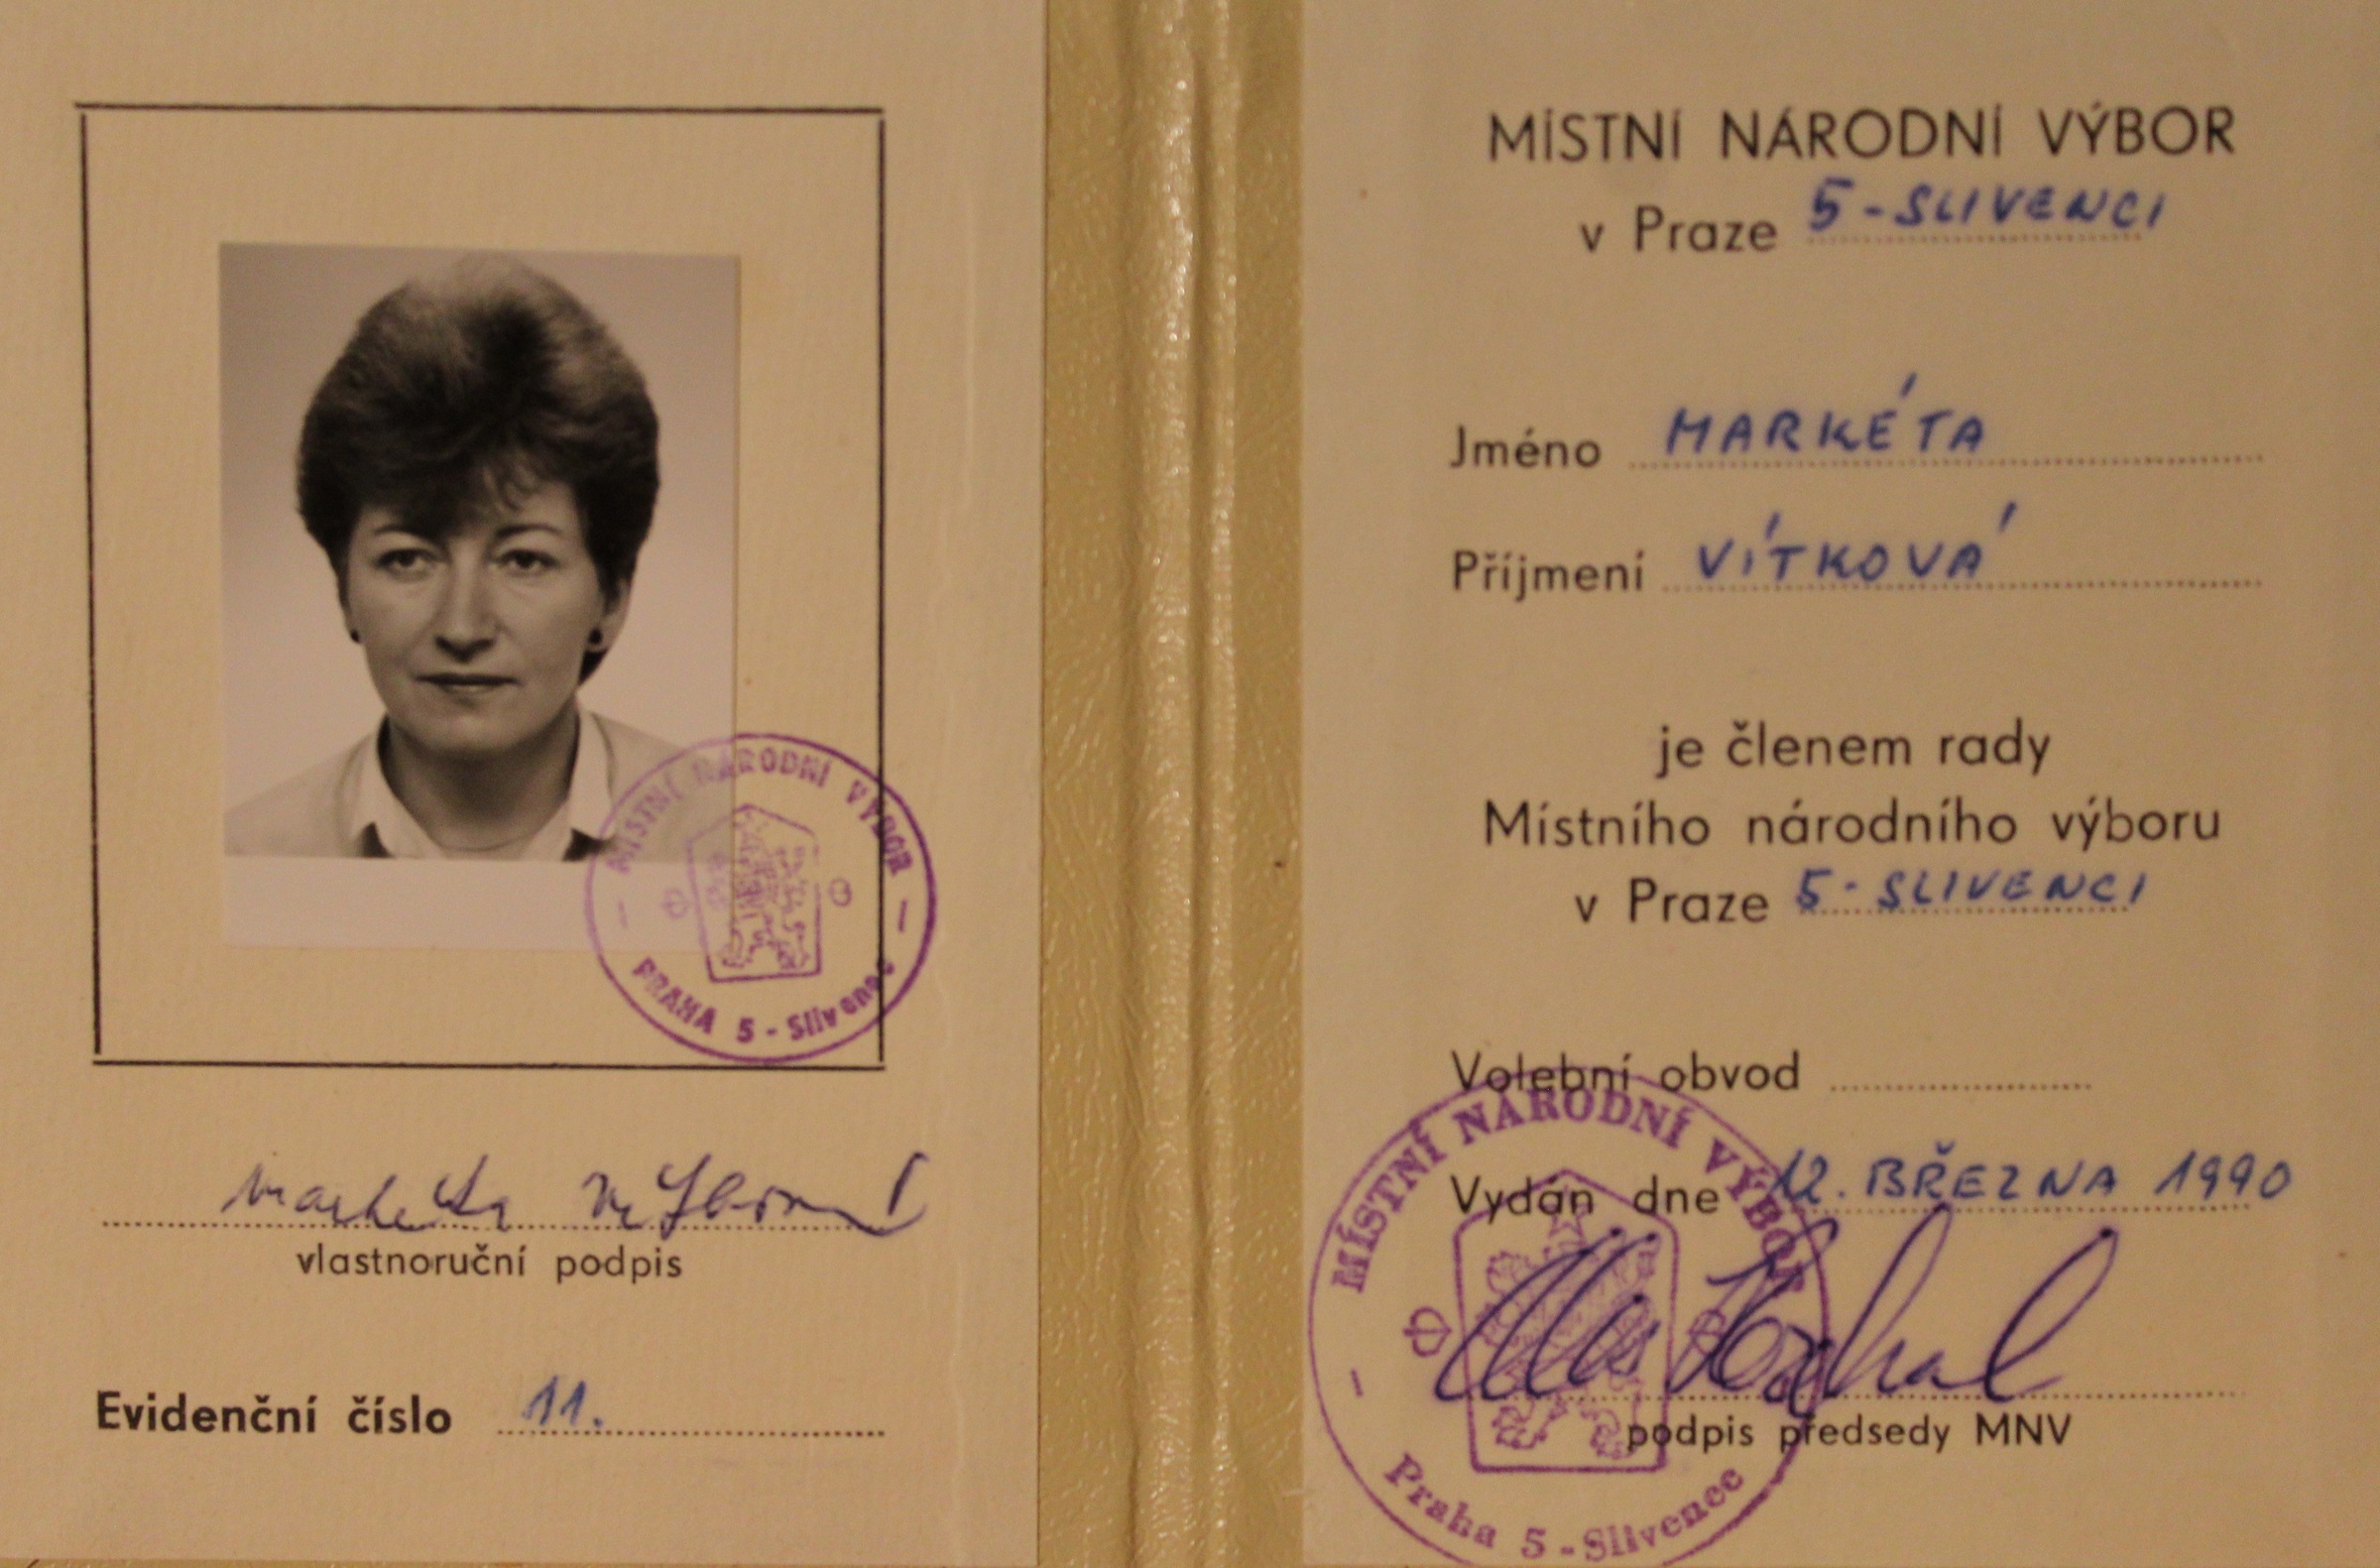 MÍSTNÍ NÁRODNÍ VÝBOR
PRAHA 5 - Slivenec
Markéta Vítková
vlastnoruční podpis
Evidenční číslo 11.
MÍSTNÍ NÁRODNÍ VÝBOR
v Praze 5-SLIVENCI
Jméno MARKÉTA
Příjmení VÍTKOVÁ
je členem rady
Místního národního výboru
v Praze 5-SLIVENCI
Volební obvod
Vydán dne 12. BŘEZNA 1990
podpis předsedy MNV
MÍSTNÍ NÁRODNÍ VÝBOR
Praha 5 - Slivenec